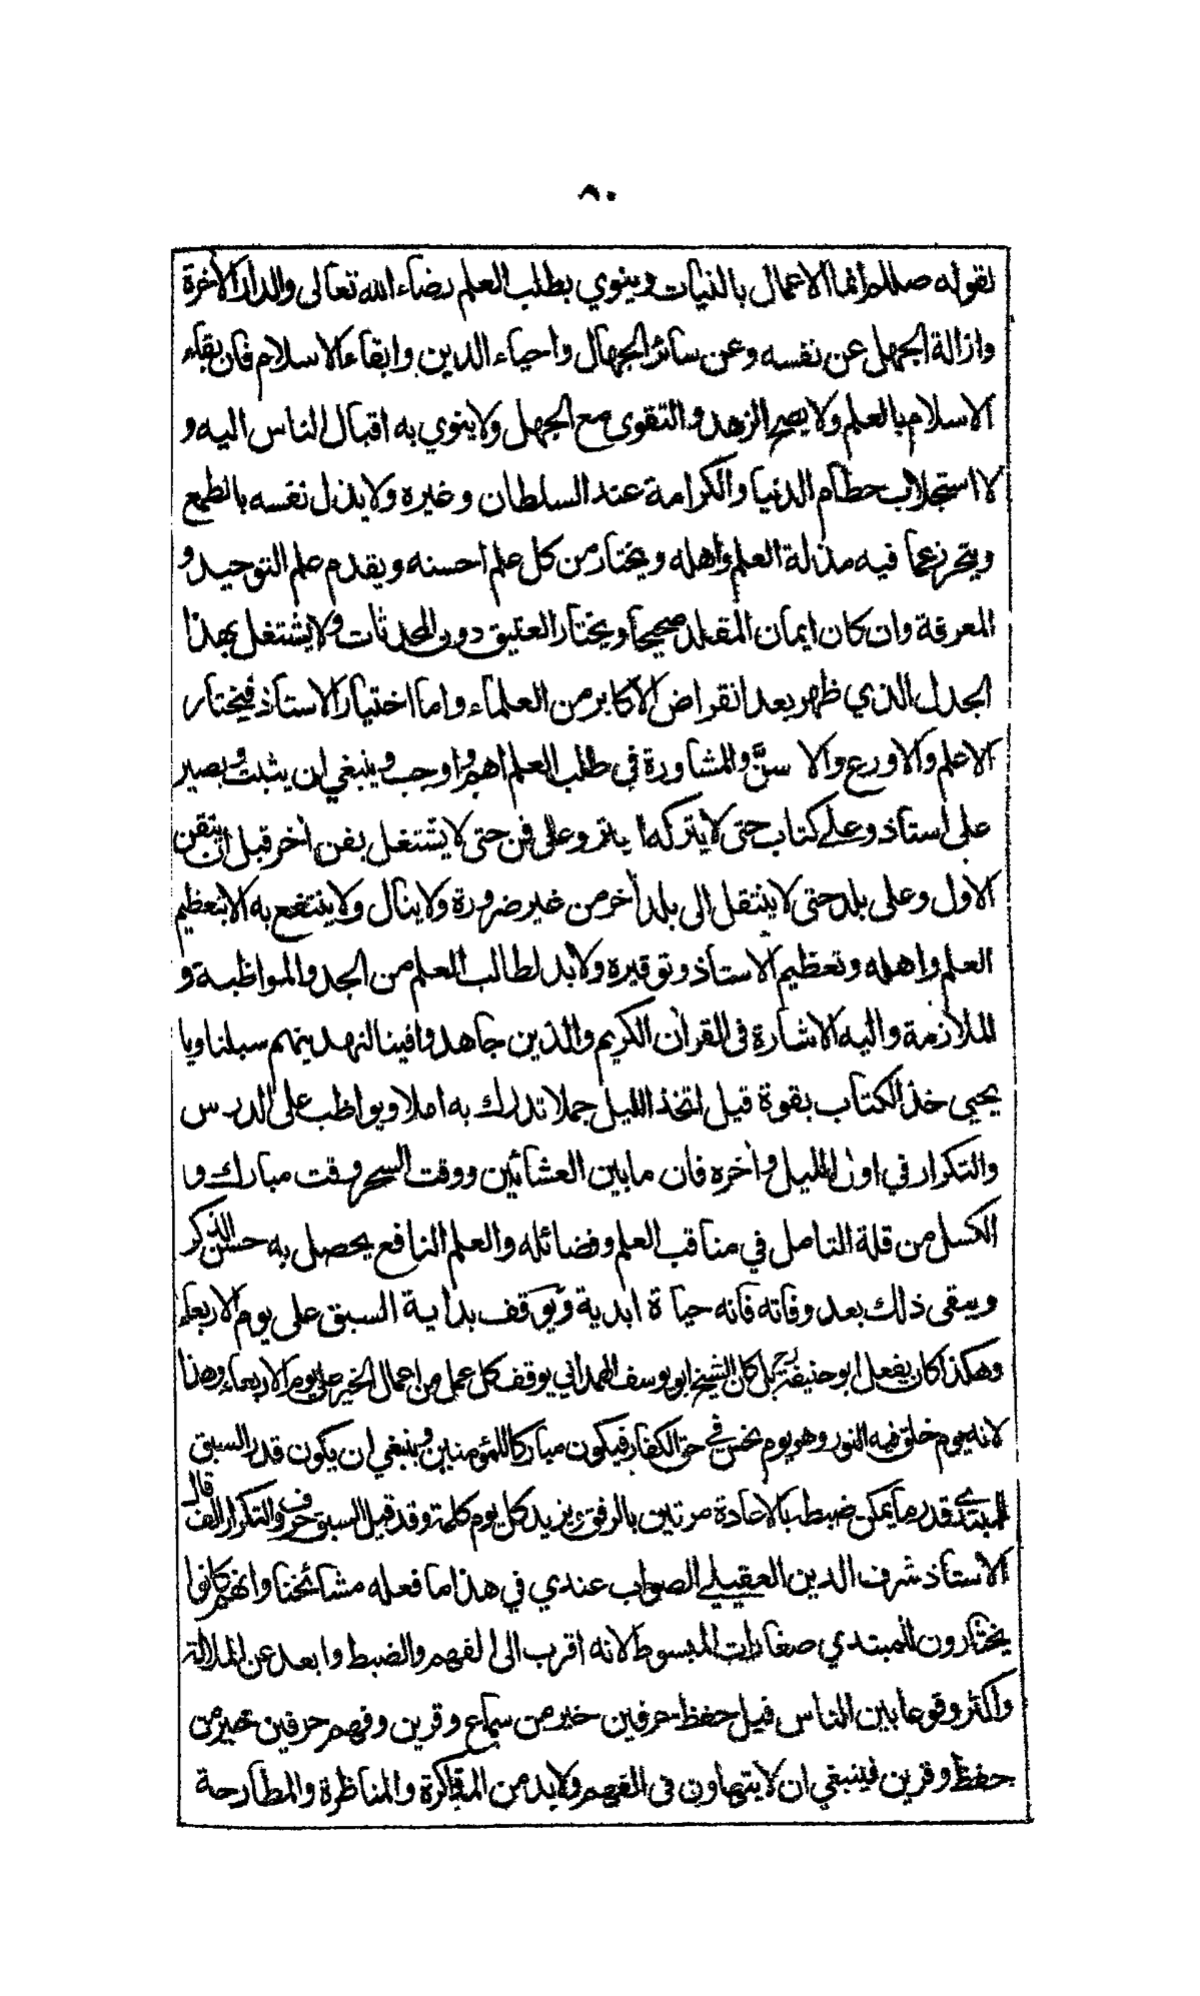 ٨٠
لقوله صللم انما الاعمال بالنيات وينوي بطلب العلم رضاء الله تعالى والدار الاخرة
وازالة الجهل عن نفسه وعن سائر الجهال واحياء الدين وابقاء الاسلام فان بقاء
الاسلام بالعلم ولا يصح الزهد والتقوى مع الجهل ولا ينوي به اقبال الناس اليه و
لا استجلاب حطام الدنيا والكرامة عند السلطان وغيره ولا يذل نفسه بالطمع
ويتحرز عما فيه مذلة العلم واهله ويختار من كل علم احسنه ويقدم علم التوحيد و
المعرفة وان كان ايمان المقلد صحيحا ويختار العتيق دون المحدثات ولا يشتغل بهذا
الجدل الذي ظهر بعد انقراض الاكابر من العلماء واما اختيار الاستاذ فيختار
الاعلم والاورع والا سنّ والمشاورة في طلب العلم اهم واوجب وينبغي ان يثبت ويصبر
على استاذ وعلى كتاب حتى لا يتركه ا بتر وعلى فن حتى لا يشتغل بفن اخر قبل ان يتقن
الاول وعلى بلد حتى لا ينتقل الى بلد اخر من غير ضرورة ولا ينال ولا ينتفع به الا بتعظيم
العلم واهله وتعظيم الاستاذ وتوقيره ولا بد لطالب العلم من الجد والمواظبة و
الملازمة واليه الاشارة في القران الكريم والذين جاهدوا فينا لنهدينهم سبلنا ويا
يحيى خذ الكتاب بقوة قيل اتخذ الليل جملا تدرك به املا ويواظب على الدرس
والتكرار في اول الليل واخره فان ما بين العشائين ووقت السحر وقت مبارك وا
الكسل من قلة التامل في مناقب العلم وفضائله والعلم النافع يحصل به حسن الذكر
ويبقى ذلك بعد وفاته فانه حياة ابدية ويوقف بداية السبق على يوم الاربعاء
وهكذا كان يفعل ابو حنيفة رح بل كان الشيخ ابو يوسف الهمداني يوقف كل عمل من اعمال الخير على يوم الاربعاء وهذا
لانه يوم خلق فيه النور وهو يوم نحس في حق الكفار فيكون مباركا للمؤمنين وينبغي ان يكون قدر السبق
للمبتدي قدر ما يمكن ضبطه بالاعادة مرتين بالرفق ويزيد كل يوم كلمة وقد قيل السبق حرف والتكرار الف قال
الاستاذ شرف الدين العقيلي الصواب عندي في هذا ما فعله مشائخنا وانهم كانوا
يختارون للمبتدي صغارات المبسوط لانه اقرب الى الفهم والضبط وابعد عن الملالة
واكثر وقوعا بين الناس قيل حفظ حرفين خير من سماع وقرين وفهم حرفين خير من
حفظ وقرين فينبغي ان لا يتهاون في الفهم ولا بد من المذاكرة والمناظرة والمطارحة